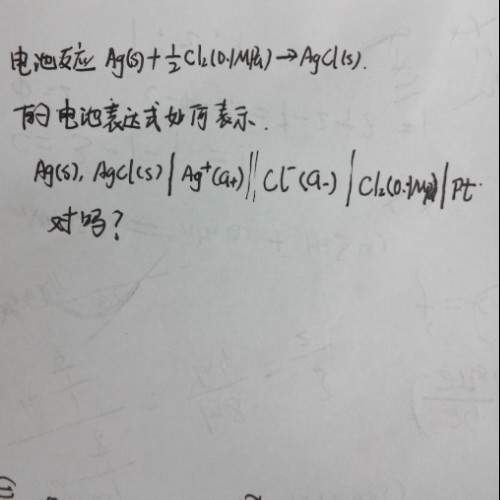 电池反应 Ag(s)+½Cl₂(0.1MPa)→AgCl(s).
的电池表达式如何表示.
Ag(s), AgCl(s) | Ag⁺(a₊) || Cl⁻(a₋) | Cl₂(0.1MPa) | Pt.
对吗?